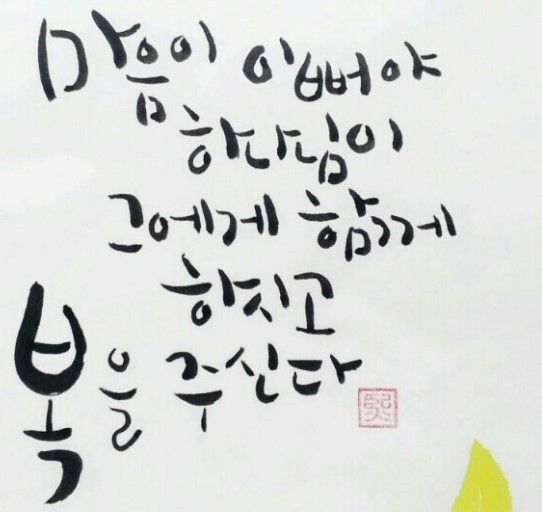 마음이 이뻐야
하나님이
그에게 함께
하시고
복을 주신다